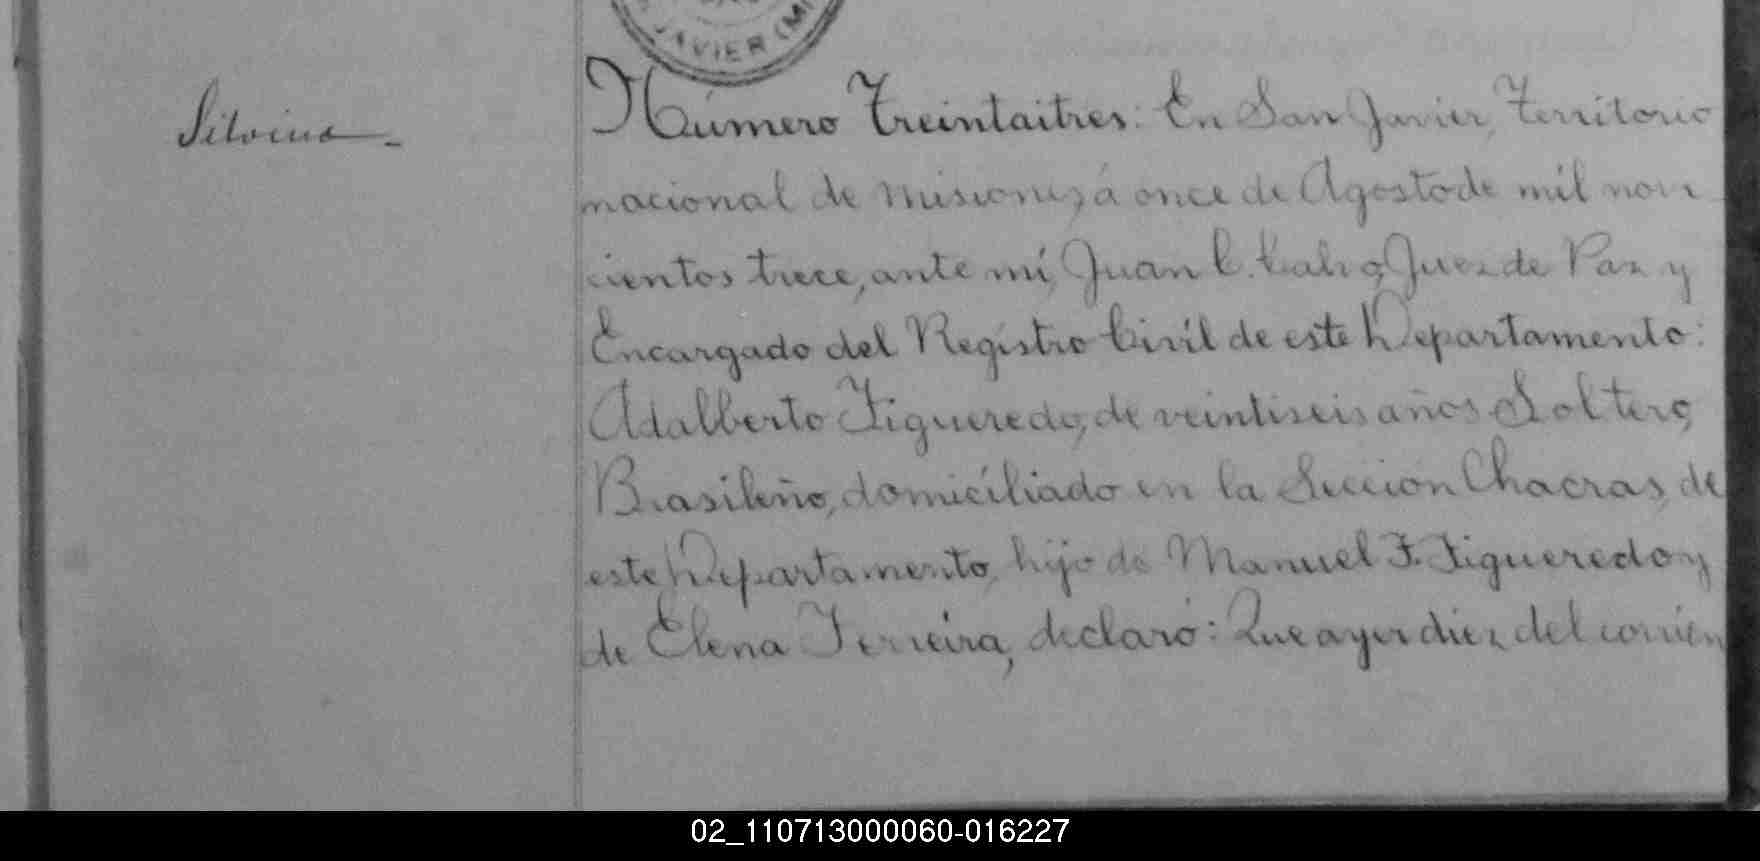 JAVIER (MI
Silvina
Número Treintaitres: En San Javier, Territorio
nacional de Misiones, á once de Agosto de mil nove
cientos trece, ante mí, Juan C. Calvo, Juez de Paz y
Encargado del Registro Civil de este Departamento:
Adalberto Figueredo, de veintiseis años Soltero,
Brasileño, domiciliado en la Sección Chacras, de
este Departamento, hijo de Manuel F. Figueredo y
de Elena Ferreira, declaró: Que ayer diez del corrien
02_110713000060-016227